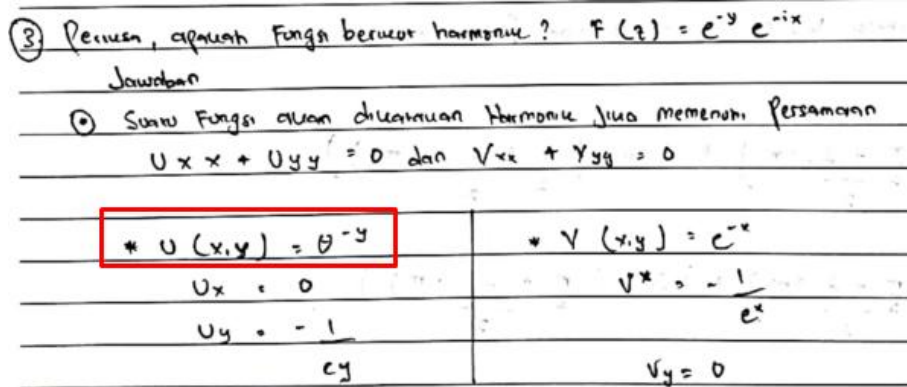 ③ Periksa, apakah Fungsi berikut harmonik? F(z) = e^-y e^-ix
Jawaban
⊙ Suatu Fungsi akan dikatakan Harmonik jika memenuhi Persamaan
Uxx + Uyy = 0 dan Vxx + Vyy = 0
* U (x,y) = e^-y
Ux = 0
Uy = - 1/ey
* V (x,y) = e^-x
Vx = - 1/e^x
Vy = 0